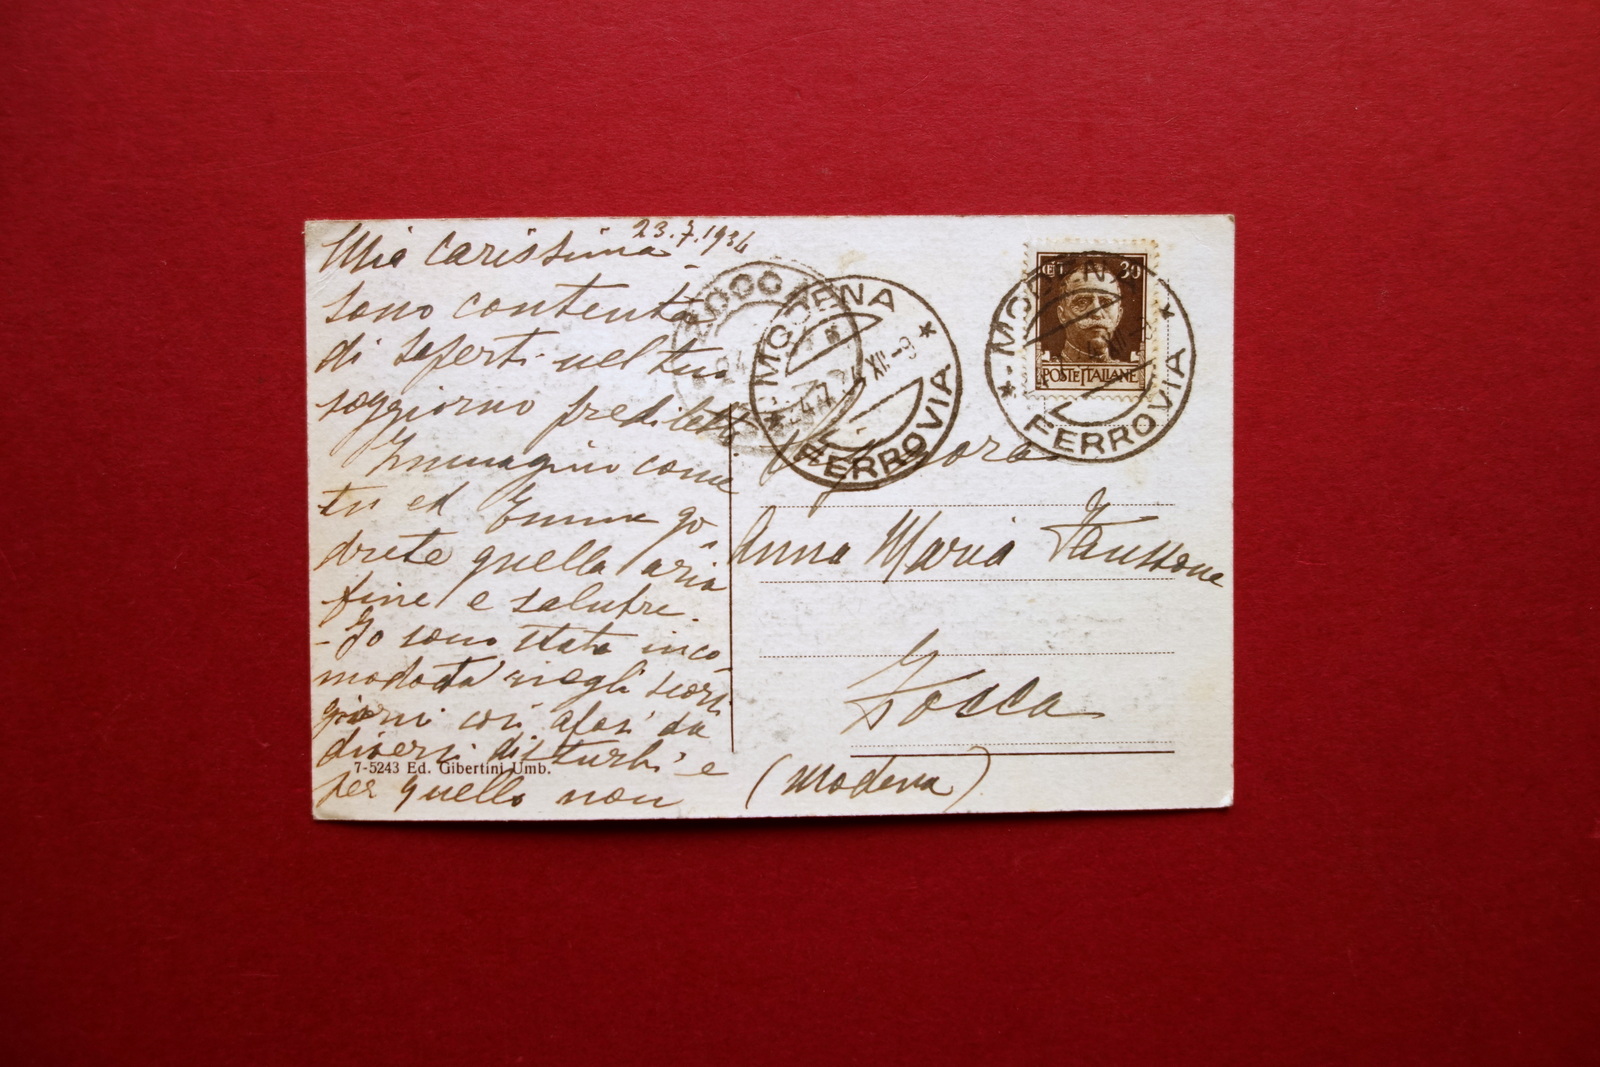 23.7.1934
Mia Carissima
sono contenta
di saperti nel tuo
soggiorno prediletto
Immagino come
tu ed Emma go-
drete quella aria
fine e salubre
- Io sono stata inco-
modata negli scorsi
giorni così afosi da
diversi disturbi e
per quello non
7-5243 Ed. Gibertini Umb.
ZOCCA
MODENA
FERROVIA
24.7.34 XII-9
MODENA
FERROVIA
CENT 30
POSTE ITALIANE
Signora
Anna Maria
Zocca
(Modena)